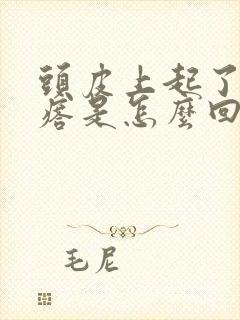 頭皮上起了
痞是怎麼回
毛尼